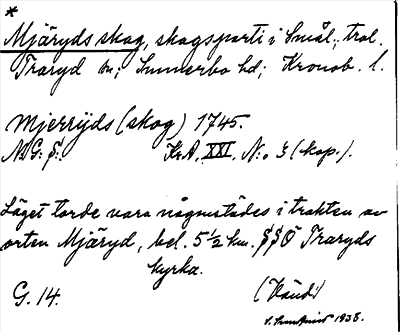 *
Mjäryds skog, skogsparti i Smål., trol.
Traryd sn; Sunnerbo hd; Kronob. l.
Mjerrijds (skog) 1745.
N.G: S. Kr.A. XXI. N:o 3 (kop.).
Läget torde vara någonstädes i trakten av
orten Mjäryd, bel. 5 1/2 km. SSÖ Traryds
kyrka.
G. 14. (Känd.)
1938.